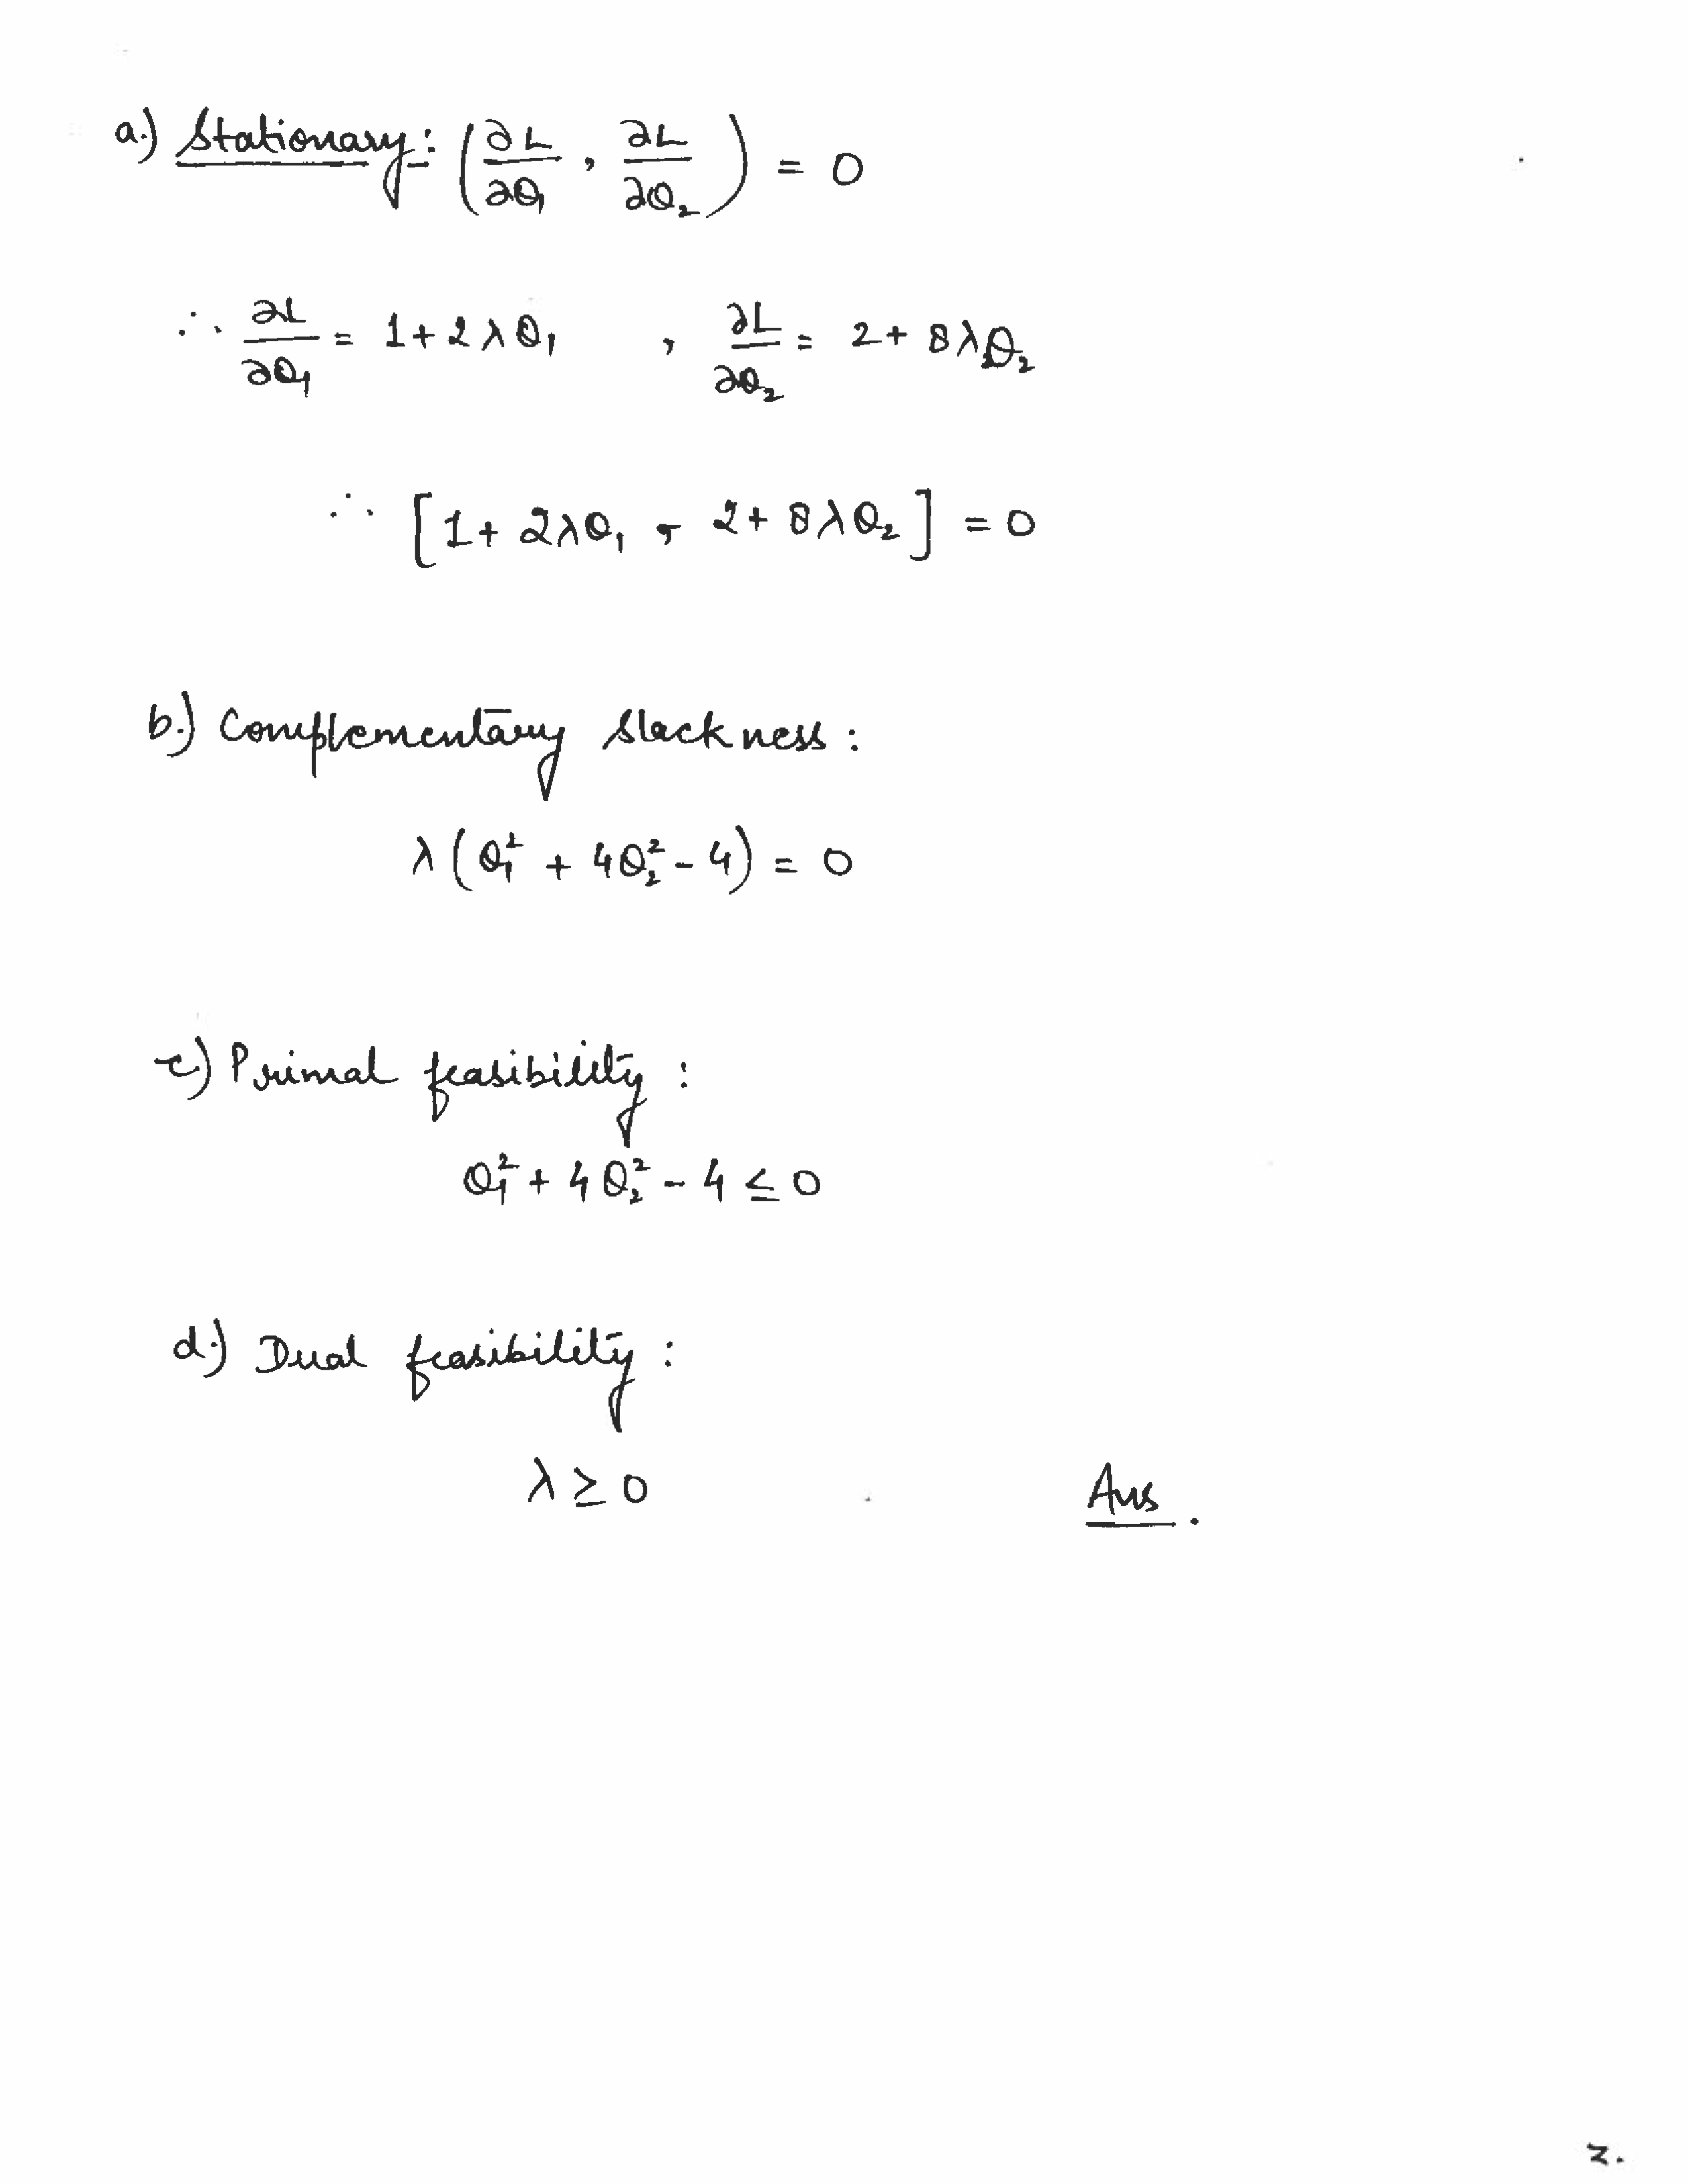 a.) Stationary: (∂L/∂θ₁, ∂L/∂θ₂) = 0
∴ ∂L/∂θ₁ = 1 + 2λθ₁ , ∂L/∂θ₂ = 2 + 8λθ₂
∴ [1 + 2λθ₁ , 2 + 8λθ₂] = 0
b.) Complementary slackness:
λ(θ₁² + 4θ₂² - 4) = 0
c) Primal feasibility:
θ₁² + 4θ₂² - 4 ≤ 0
d.) Dual feasibility:
λ ≥ 0
Ans.
2.